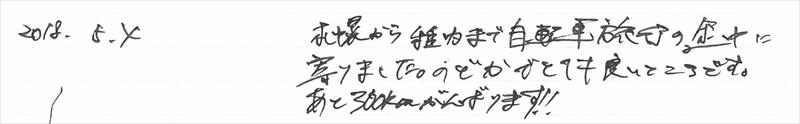 2018. 5. 4 札幌から稚内まで自転車旅行の途中に
寄りました。のどかでとても良いところです。
あと300kmがんばります!!